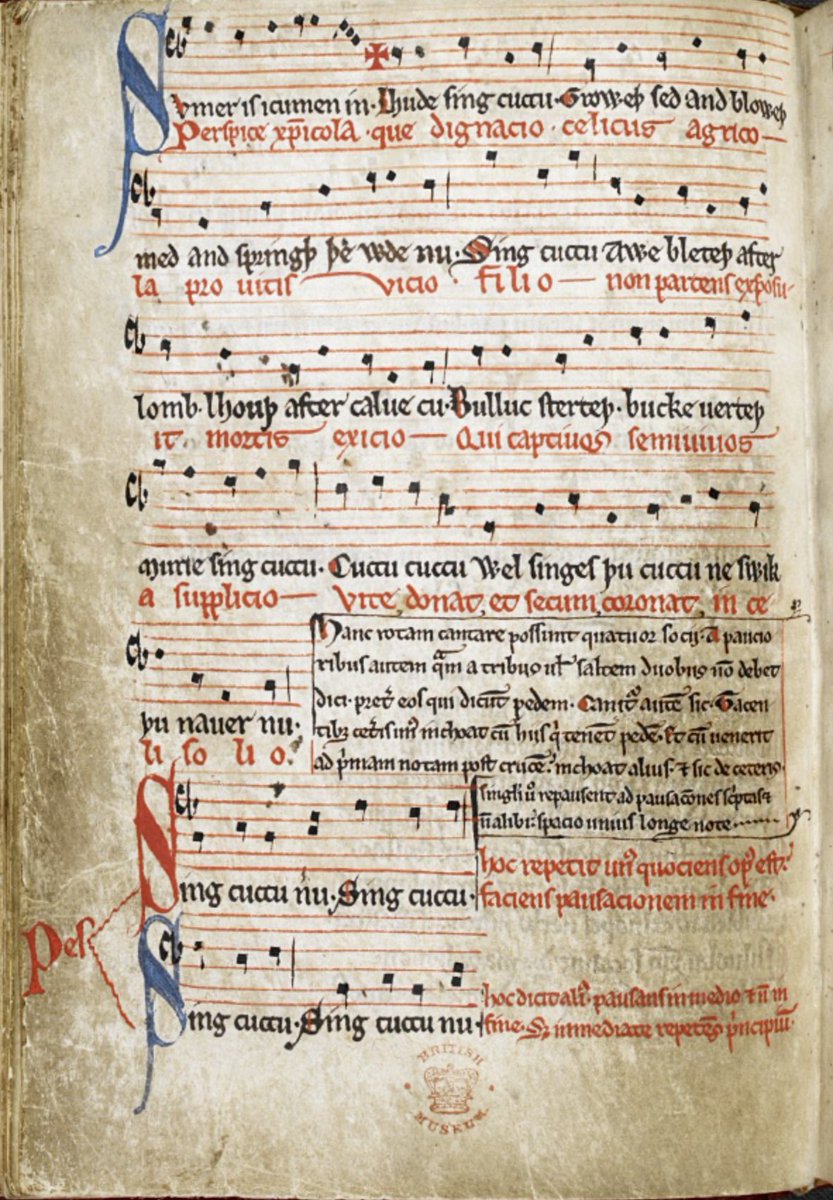 Svmer is icumen in. Lhude sing cuccu. Groweþ sed and bloweþ
Perspice xp̄icola. que dignacio. celicus agrico-
med and springþ þe wde nu. Sing cuccu Awe bleteþ after
la pro uitis vicio. filio- non parcens exposu-
lomb. lhouþ after calue cu. Bulluc sterteþ. bucke uerteþ
it mortis exicio- Qui captiuos semiuiuos
murie sing cuccu. Cuccu cuccu Wel singes þu cuccu ne swik
a supplicio- Vite donat, et secum coronat, in ce
þu nauer nu.
li so li o.
Hanc rotam cantare possunt quatuor socij. A paucio
ribus autem qam a tribus ul' saltem duobus nō debet
dici. pret' eos qui dicūt pedem. Canit' autē sic. Tacen
tibz cet'is un' inchoat cū hiis q' tenēt pedē. Et cū uenerit
ad p'mam notam post crucē. inchoat alius. & sic de ceteris.
singli u' repausent ad pausacōnes sc'ptas &
n̄ alibi. spacio unius longe note.
Pes
Sing cuccu nu. Sing cuccu.
hoc repetit un' quociens op' est.
faciens pausacionem in fine.
Sing cuccu. Sing cuccu nu
hoc dicit ali'. pausans in medio & n̄ in
fine. Sz inmediate repetēs p'ncipiū.
BRITISH
MUSEUM